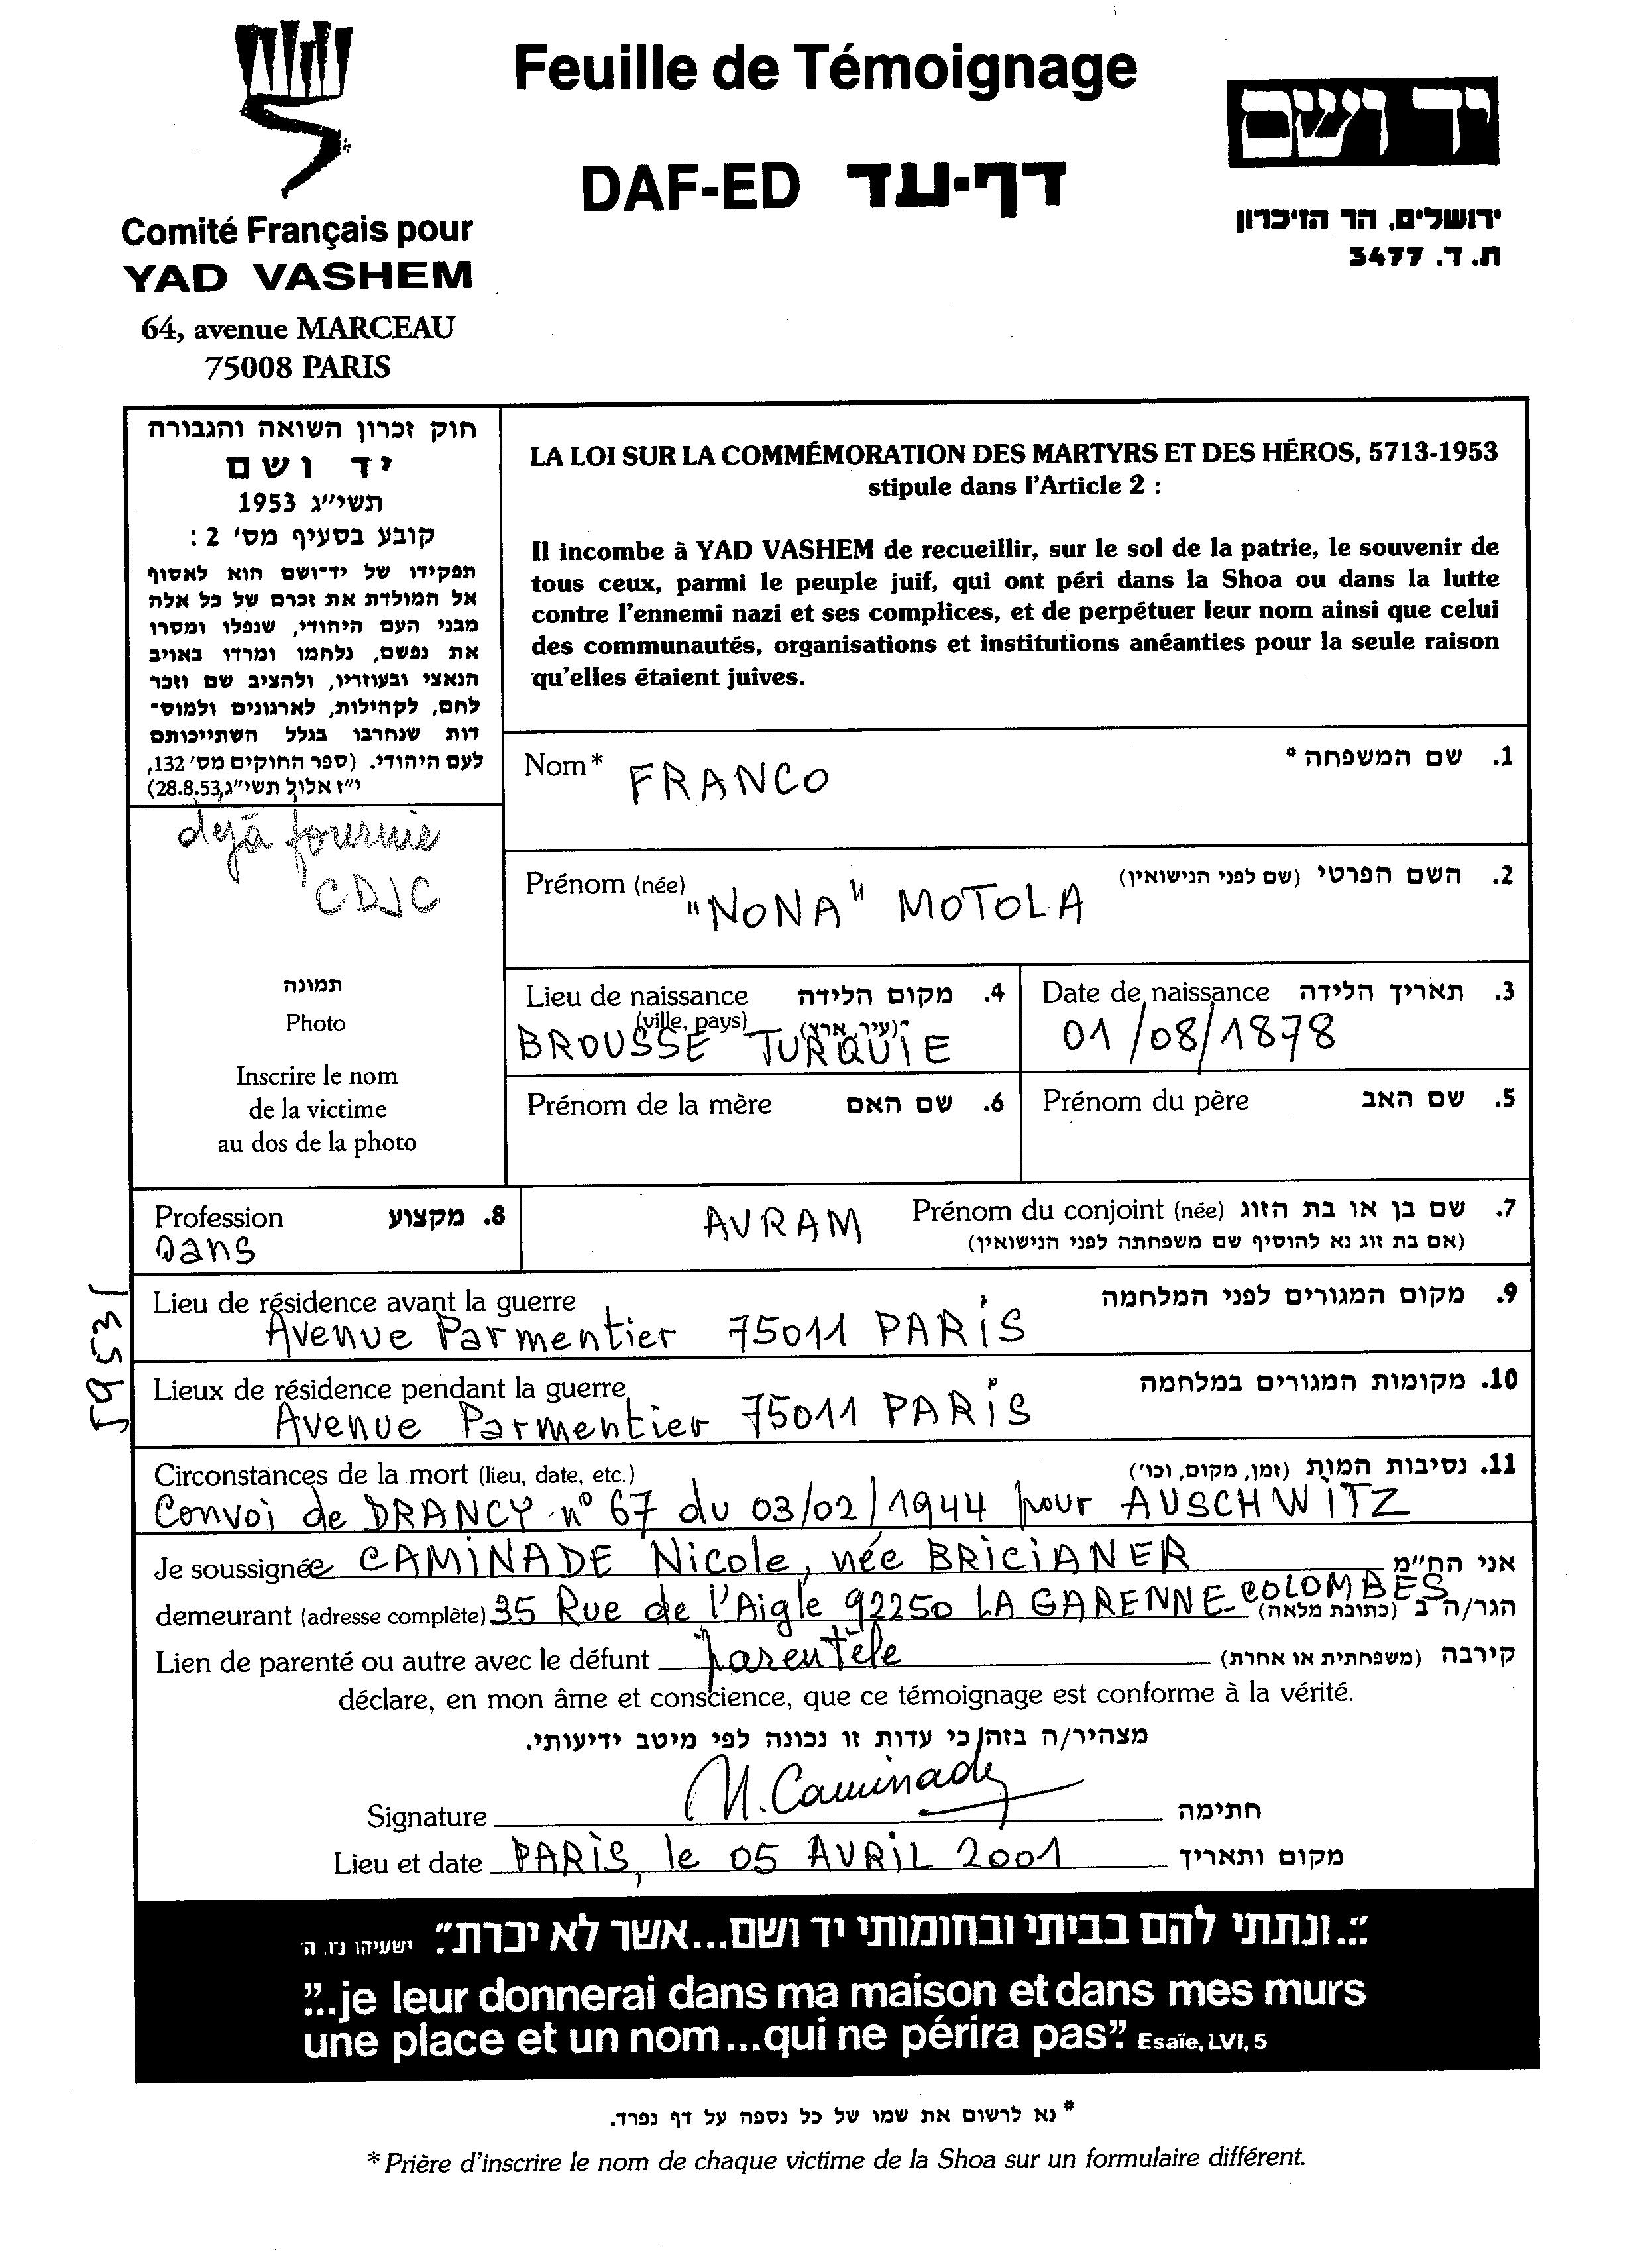 Feuille de Témoignage
DAF-ED דף-עד
Comité Français pour
YAD VASHEM
64, avenue MARCEAU
75008 PARIS
יד ושם
ירושלים, הר הזיכרון
ת.ד. 3477
חוק זכרון השואה והגבורה
יד ושם
תשי״ג 1953
קובע בסעיף מס׳ 2 :
תפקידו של יד־ושם הוא לאסוף
אל המולדת את זכרם של כל אלה
מבני העם היהודי, שנפלו ומסרו
את נפשם, נלחמו ומרדו באויב
הנאצי ובעוזריו, ולהציב שם וזכר
להם, לקהילות, לארגונים ולמוס־
דות שנחרבו בגלל השתייכותם
לעם היהודי. (ספר החוקים מס׳ 132,
י״ז אלול תשי״ג, 28.8.53)
LA LOI SUR LA COMMÉMORATION DES MARTYRS ET DES HÉROS, 5713-1953
stipule dans l'Article 2 :
Il incombe à YAD VASHEM de recueillir, sur le sol de la patrie, le souvenir de
tous ceux, parmi le peuple juif, qui ont péri dans la Shoa ou dans la lutte
contre l'ennemi nazi et ses complices, et de perpétuer leur nom ainsi que celui
des communautés, organisations et institutions anéanties pour la seule raison
qu'elles étaient juives.
déjà fournie
CDJC
תמונה
Photo
Inscrire le nom
de la victime
au dos de la photo
Nom* FRANCO 1. שם המשפחה *
Prénom (née) "NONA" MOTOLA 2. השם הפרטי (שם לפני הנישואין)
Lieu de naissance 4. מקום הלידה
(ville, pays) (עיר, ארץ)
BROUSSE TURQUIE
Date de naissance 3. תאריך הלידה
01/08/1878
Prénom de la mère 6. שם האם
Prénom du père 5. שם האב
Profession 8. מקצוע
Sans
AVRAM Prénom du conjoint (née) 7. שם בן או בת הזוג
(אם בת זוג נא להוסיף שם משפחתה לפני הנישואין)
Lieu de résidence avant la guerre 9. מקום המגורים לפני המלחמה
Avenue Parmentier 75011 PARIS
Lieux de résidence pendant la guerre 10. מקומות המגורים במלחמה
Avenue Parmentier 75011 PARIS
Circonstances de la mort (lieu, date, etc.) 11. נסיבות המות (זמן, מקום, וכו׳)
Convoi de DRANCY n° 67 du 03/02/1944 pour AUSCHWITZ
Je soussignée CAMINADE Nicole, née BRICIANER אני הח״מ
demeurant (adresse complète) 35 Rue de l'Aigle 92250 LA GARENNE-COLOMBES הגר/ה ב (כתובת מלאה)
Lien de parenté ou autre avec le défunt parentèle קירבה (משפחתית או אחרת)
déclare, en mon âme et conscience, que ce témoignage est conforme à la vérité.
מצהיר/ה בזה כי עדות זו נכונה לפי מיטב ידיעותי.
Signature N. Caminade חתימה
Lieu et date PARIS, le 05 AVRIL 2001 מקום ותאריך
״...ונתתי להם בביתי ובחומותי יד ושם...אשר לא יכרת״. ישעיהו נו. ה׳
"...je leur donnerai dans ma maison et dans mes murs
une place et un nom...qui ne périra pas". Esaïe, LVI, 5
* נא לרשום את שמו של כל נספה על דף נפרד.
* Prière d'inscrire le nom de chaque victime de la Shoa sur un formulaire différent.